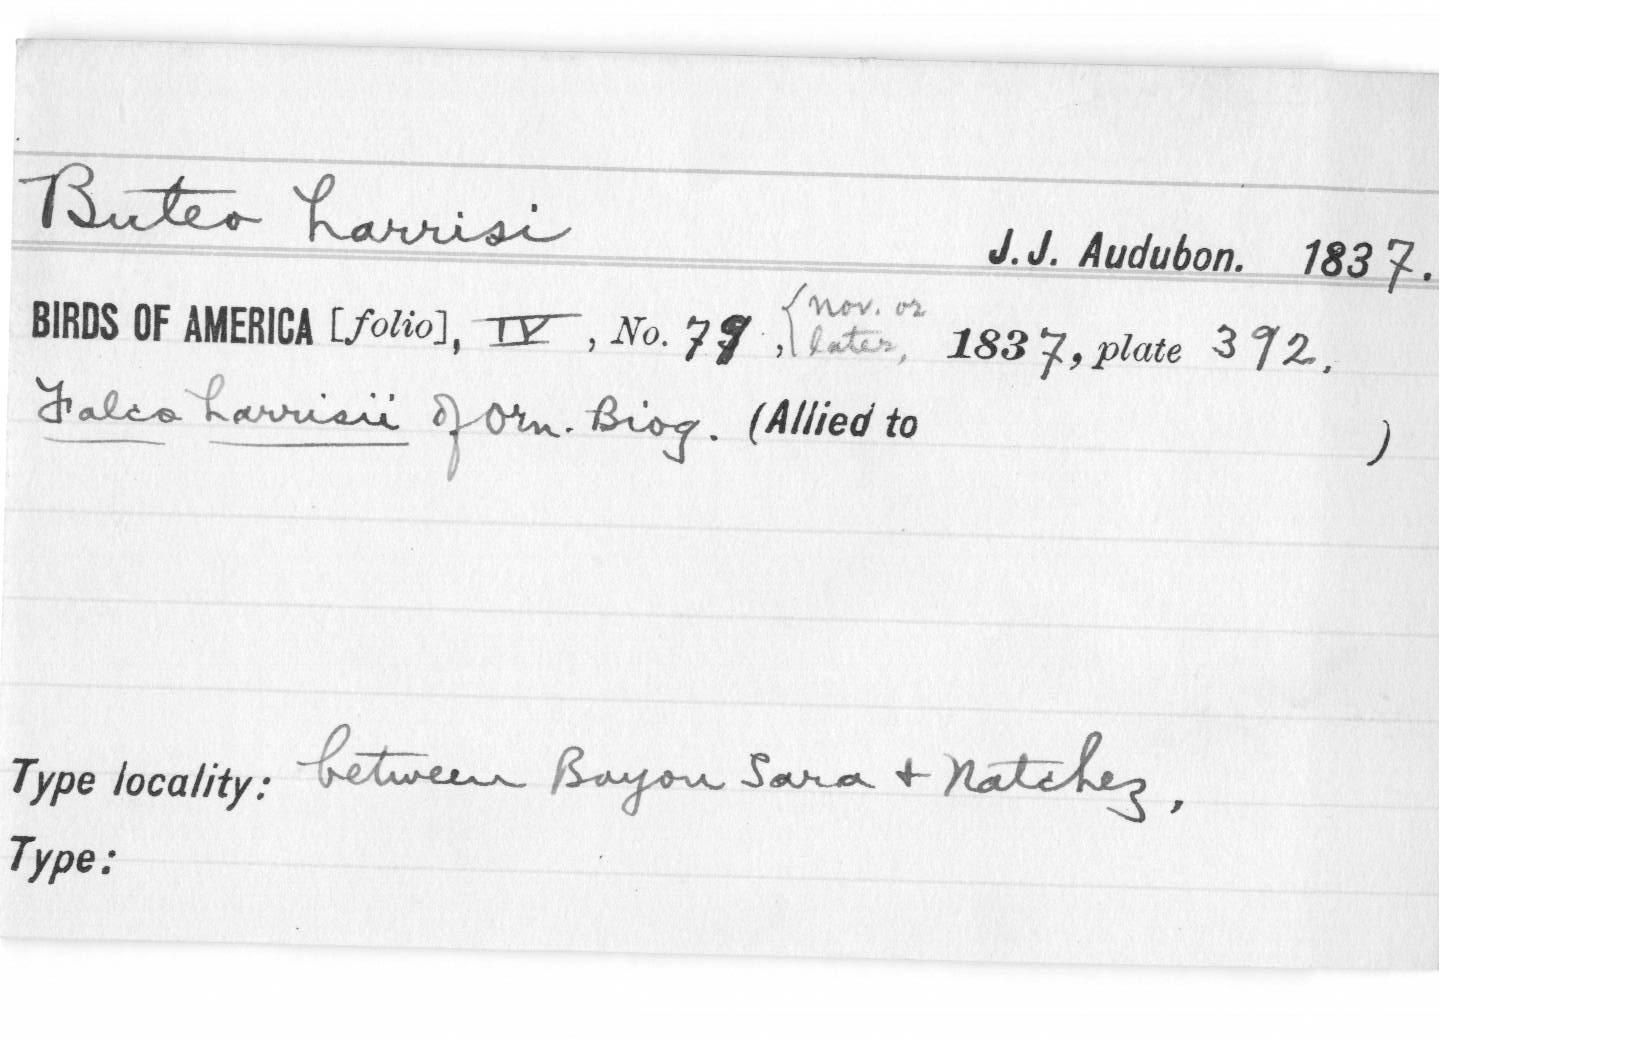 Buteo harrisi
J. J. Audubon. 1837.
BIRDS OF AMERICA [folio], IV, No. 79, { nov. or later, 1837, plate 392.
Falco harrisii of Orn. Biog. (Allied to )
Type locality: between Bayou Sara + Natchez,
Type: